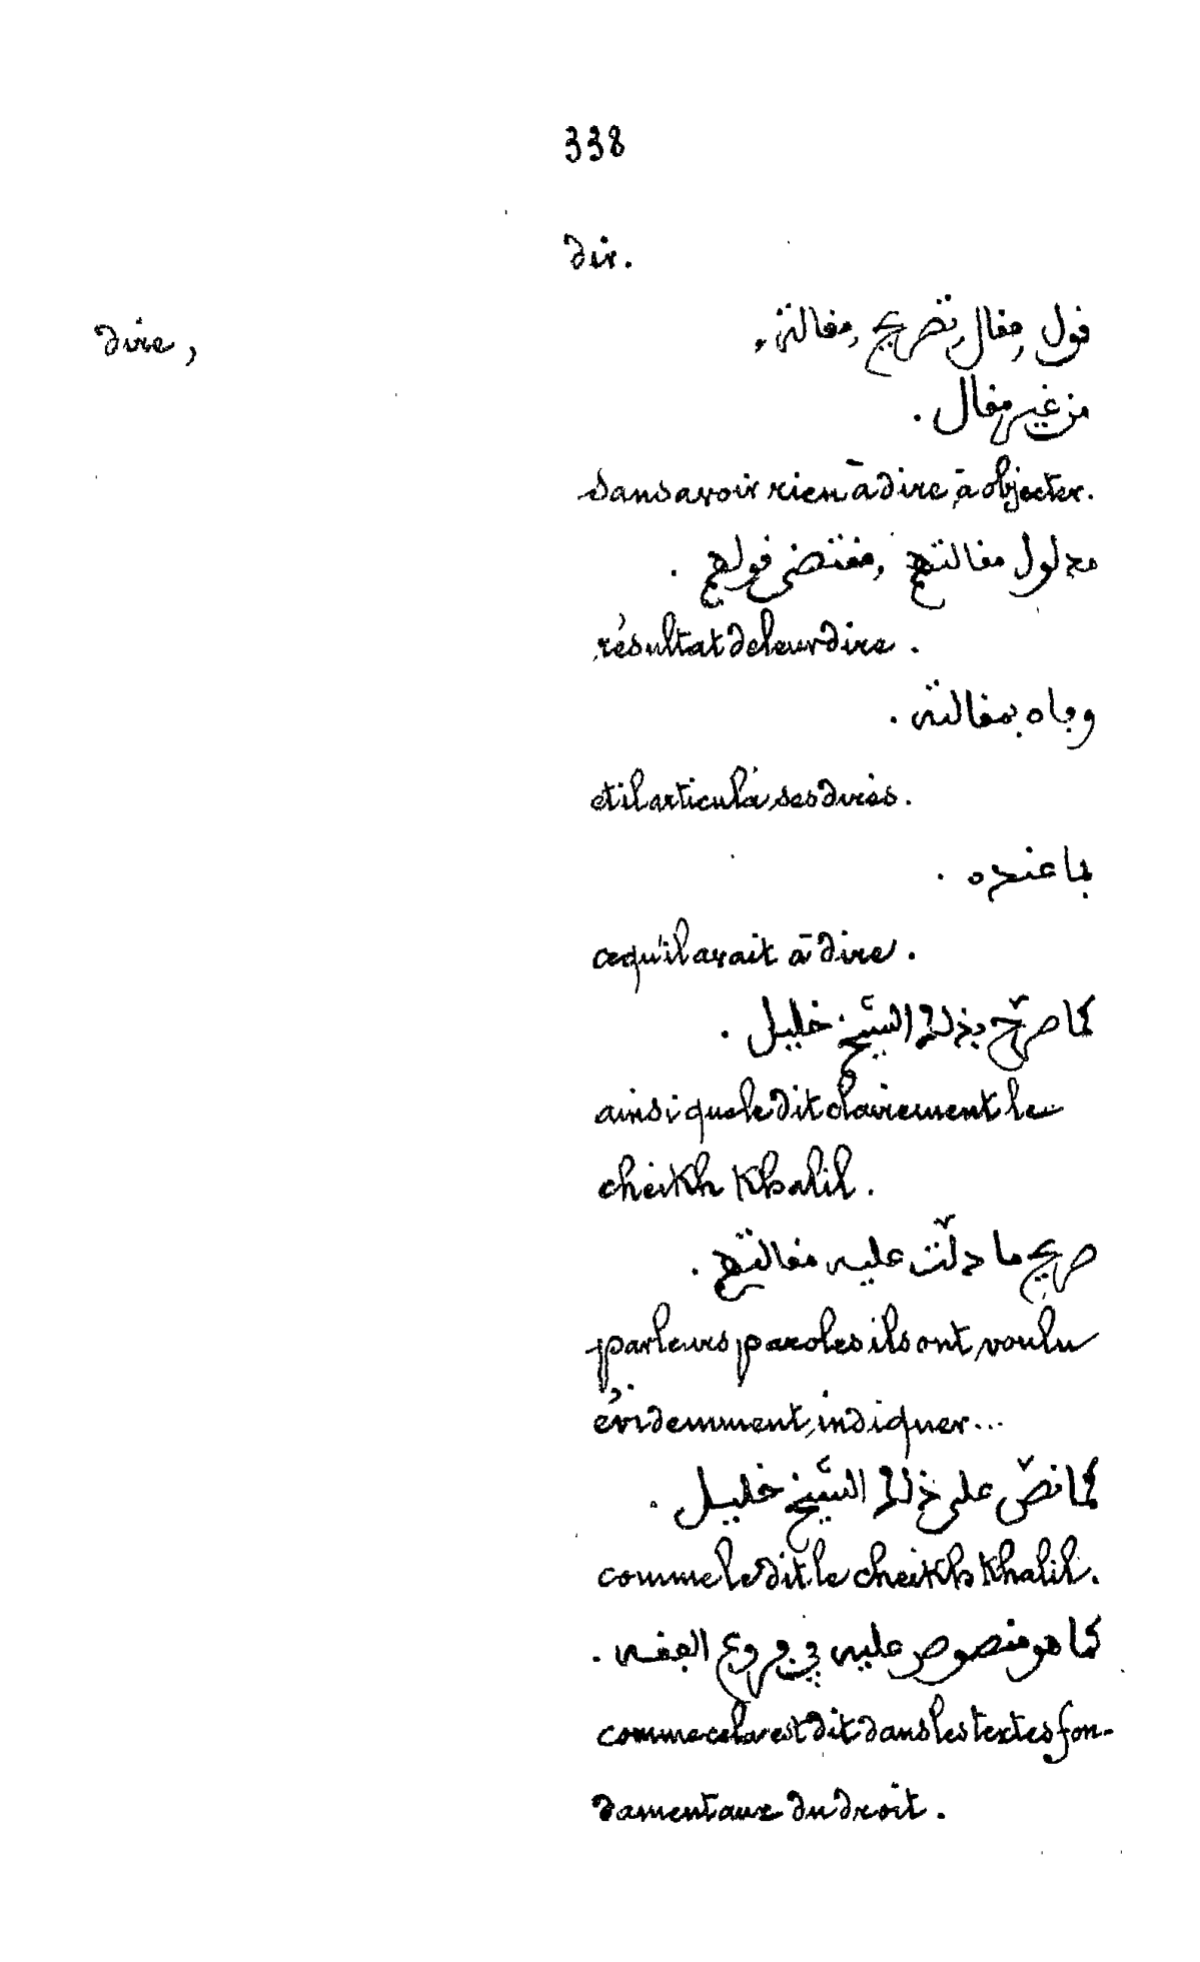 338
dir.
dire, قول, مقال, تصريح, مقالة.
من غير مقال.
sans avoir rien à dire, à objecter.
مدلول مقالتهم, مقتضى قولهم.
résultat de leur dire.
وفاه بمقالته.
et il articula ses dires.
بما عنده.
ce qu'il avait à dire.
كما صرّح بذلك الشّيخ خليل.
ainsi que le dit clairement le
cheikh Khalil.
صريح ما دلّت عليه مقالتهم.
par leurs paroles ils ont, voulu
évidemment, indiquer...
كما نصّ على ذلك الشّيخ خليل.
comme le dit le cheikh Khalil.
كما هو منصوص عليه في فروع الفقه.
comme cela est dit dans les textes fon-
damentaux du droit.